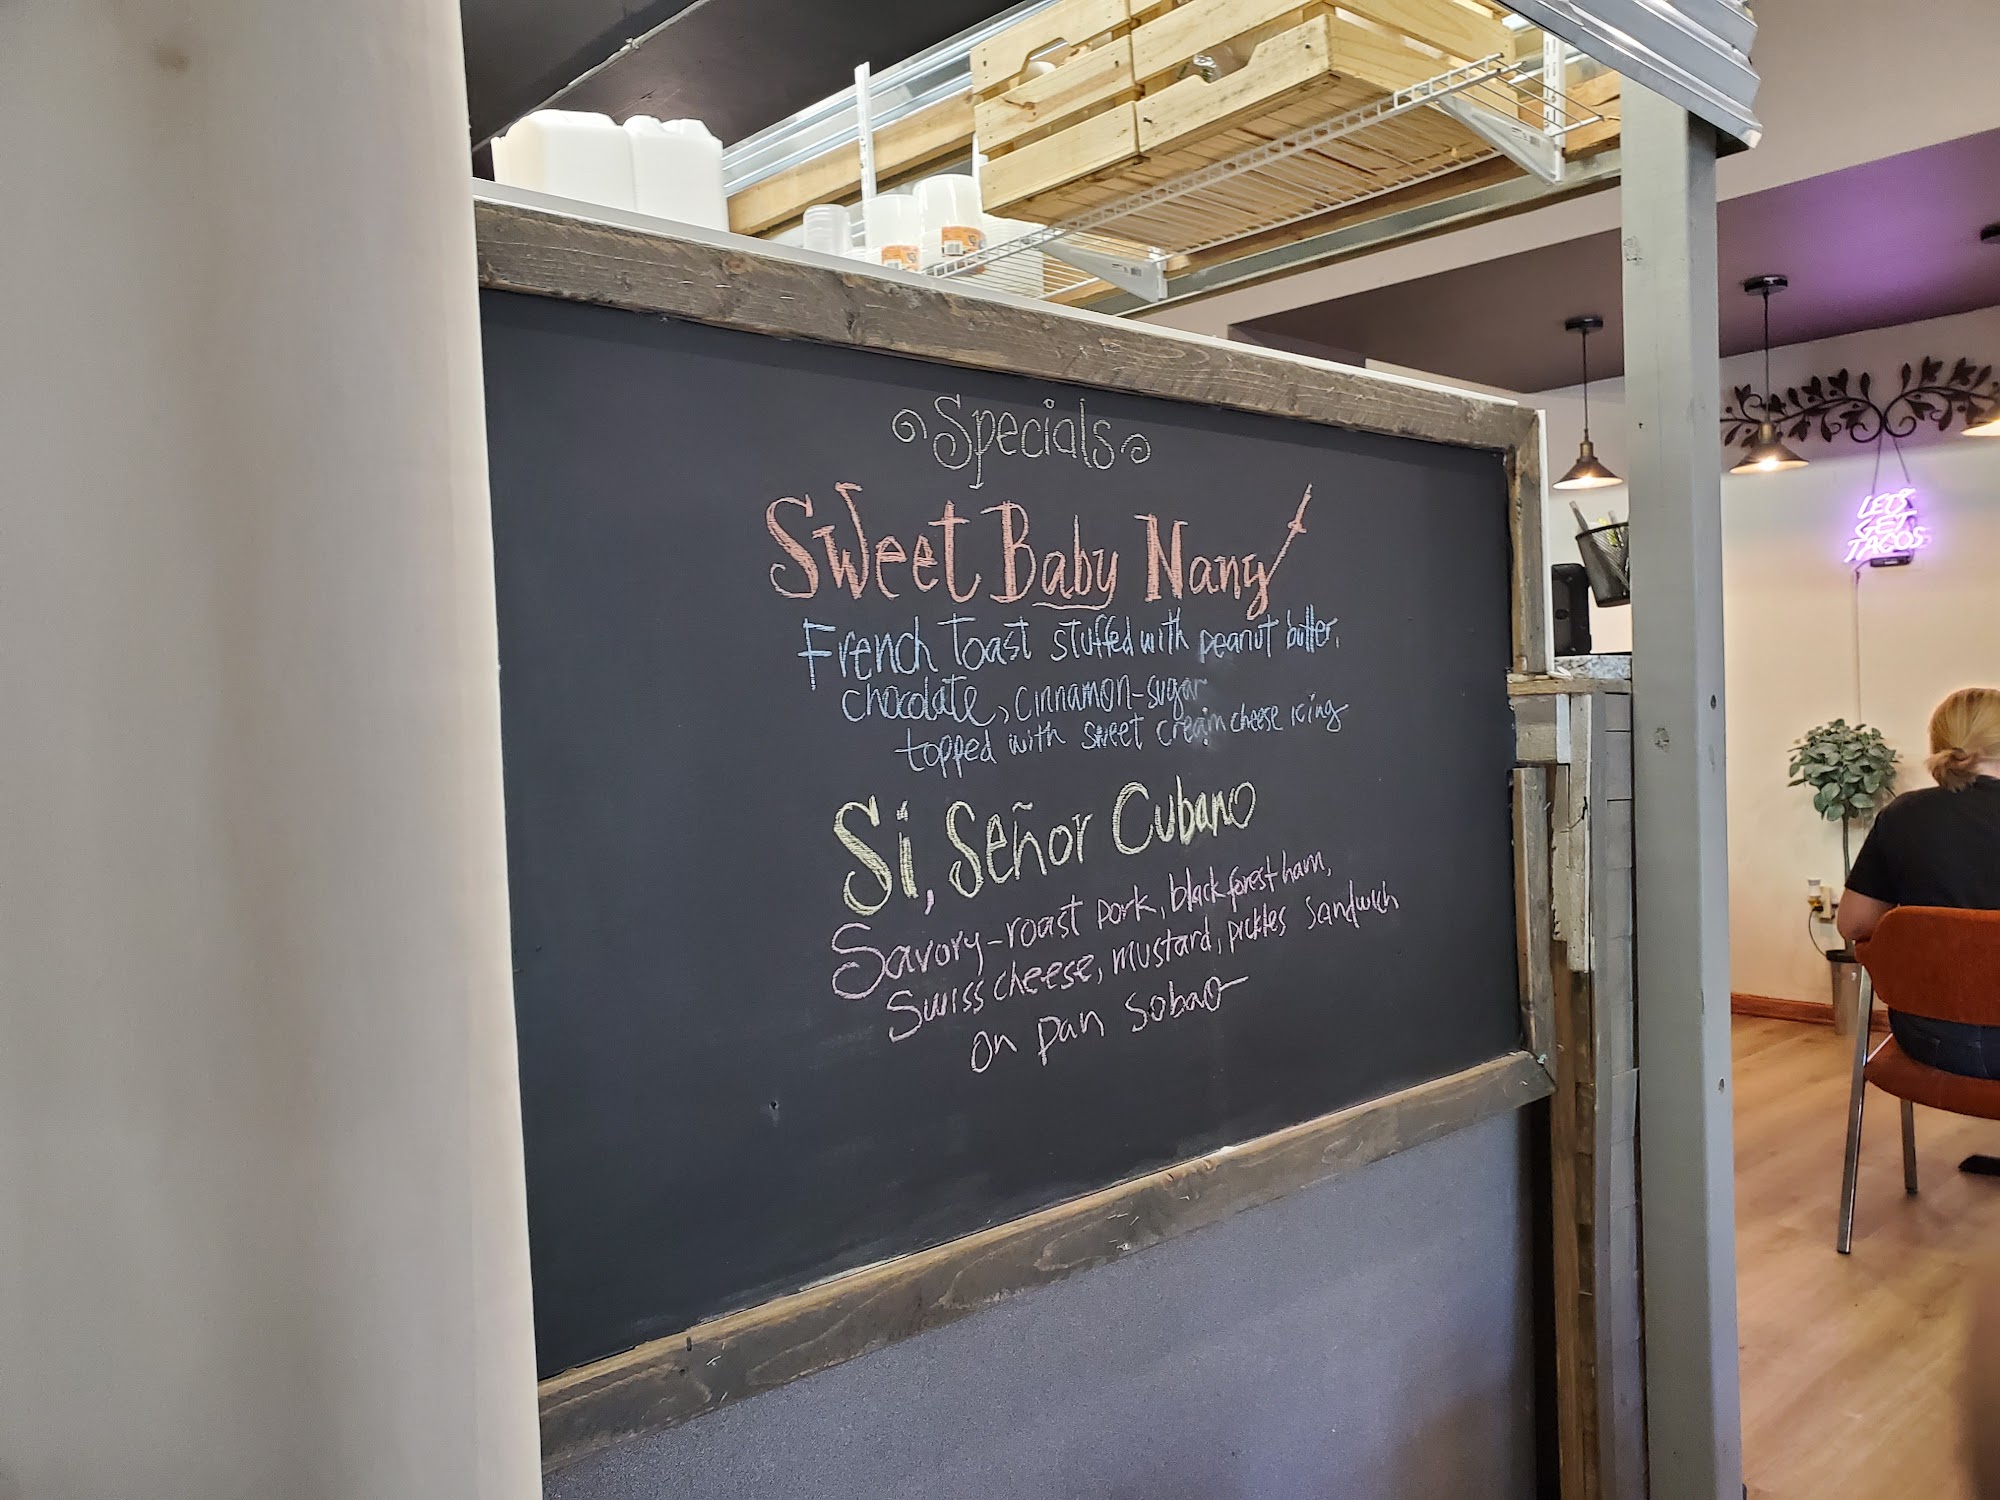 Specials
Sweet Baby Nany
French Toast stuffed with peanut butter,
chocolate, cinnamon-sugar
topped with sweet cream cheese icing
Si, Señor Cubano
Savory-roast pork, black forest ham,
Swiss cheese, mustard, pickles sandwich
on pan sobao
LET'S
GET
TACOS